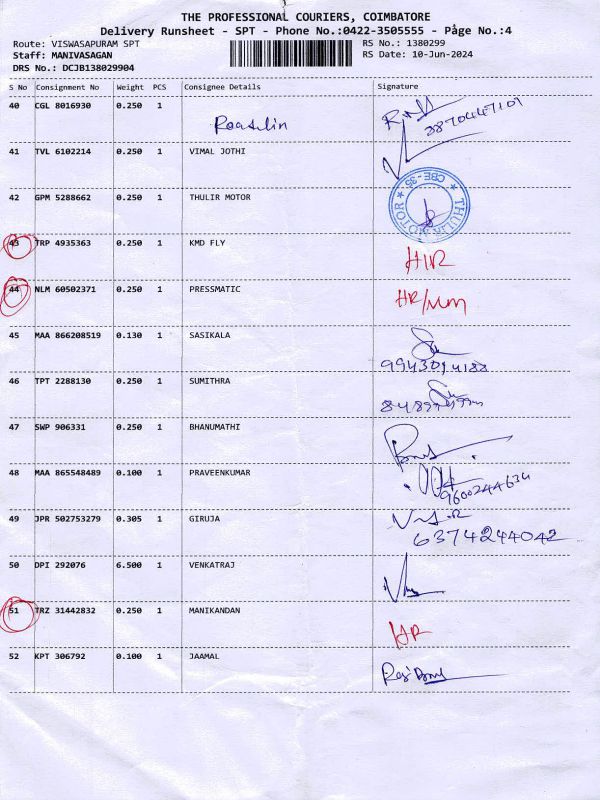 THE PROFESSIONAL COURIERS, COIMBATORE
Delivery Runsheet - SPT - Phone No.:0422-3505555 - Page No.:4
Route: VISWASAPURAM SPT RS No.: 1380299
Staff: MANIVASAGAN RS Date: 10-Jun-2024
DRS No.: DCJB138029904
S No Consignment No Weight PCS Consignee Details Signature
40 CGL 8016930 0.250 1
3870447101
41 TVL 6102214 0.250 1 VIMAL JOTHI
42 GPM 5288662 0.250 1 THULIR MOTOR
THULIR MOTOR ★ CBE-35 ★
43 TRP 4935363 0.250 1 KMD FLY
HIR
44 NLM 60502371 0.250 1 PRESSMATIC
HR/MM
45 MAA 866208519 0.130 1 SASIKALA
9943014188
46 TPT 2288130 0.250 1 SUMITHRA
47 SWP 906331 0.250 1 BHANUMATHI
48 MAA 865548489 0.100 1 PRAVEENKUMAR
9600244634
49 JPR 502753279 0.305 1 GIRUJA
6374244042
50 DPI 292076 6.500 1 VENKATRAJ
51 TRZ 31442832 0.250 1 MANIKANDAN
HR
52 KPT 306792 0.100 1 JAAMAL